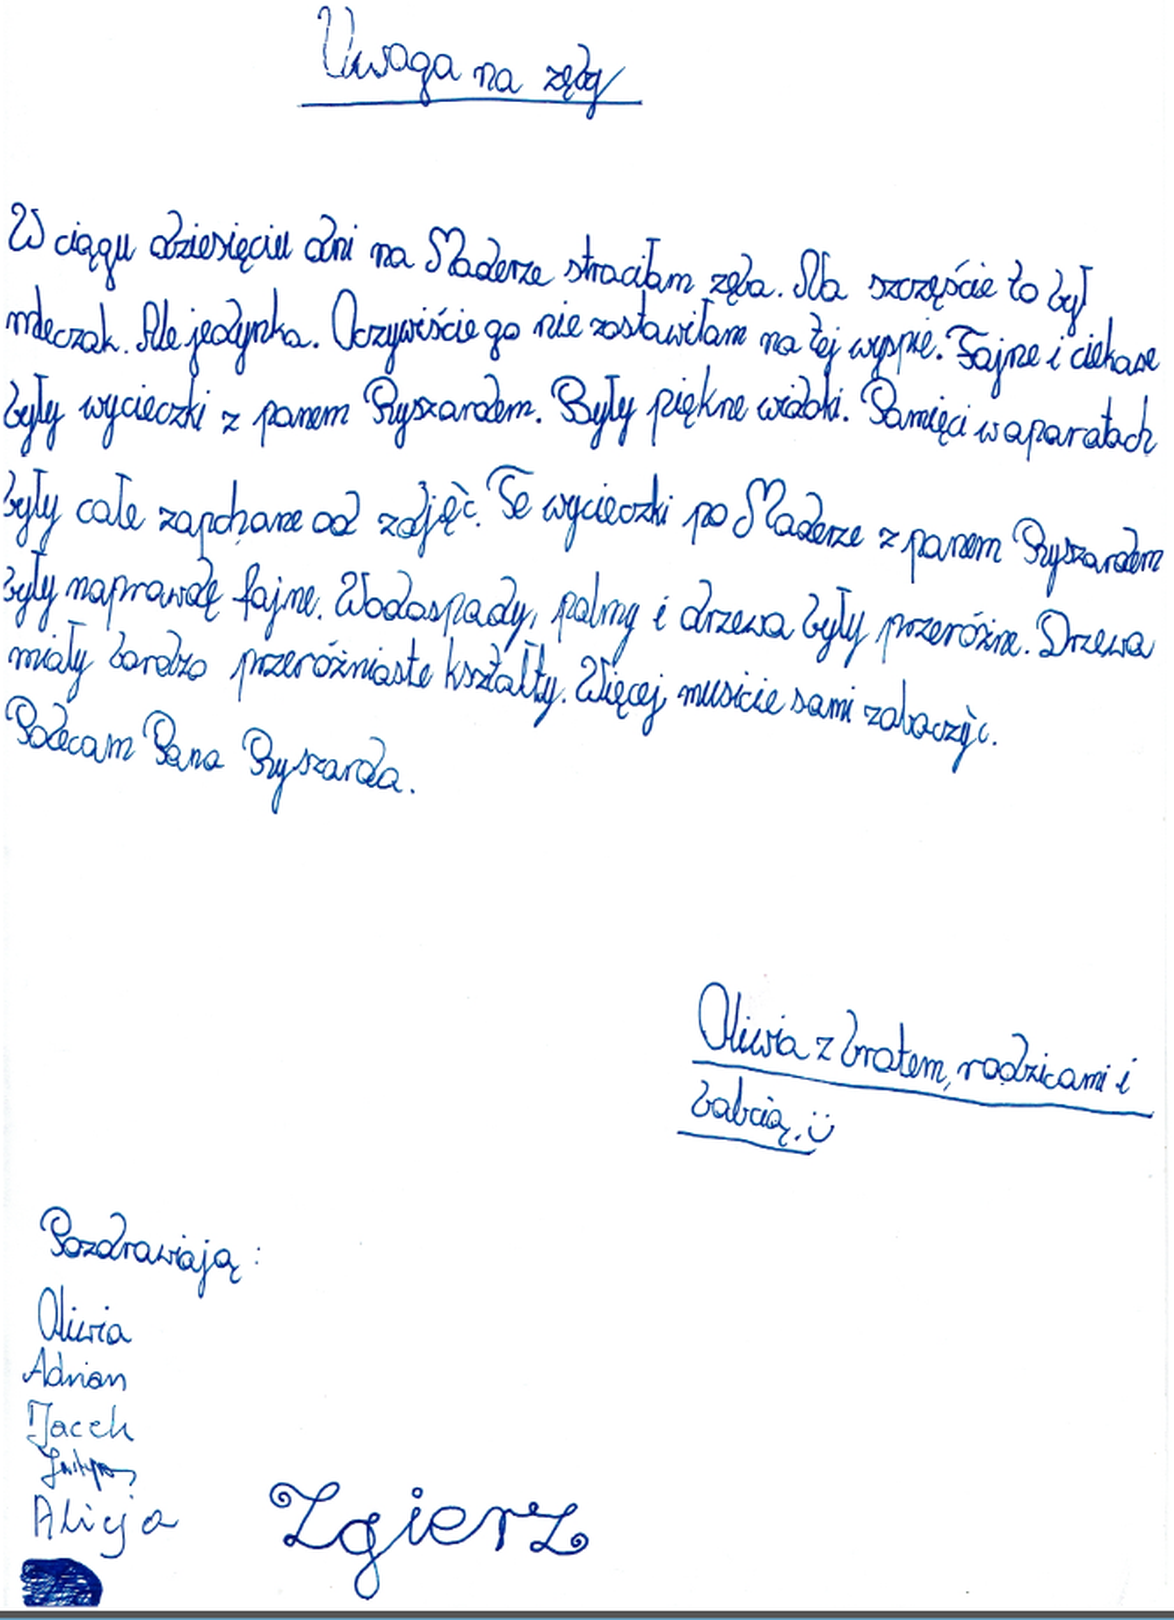 Uwaga na zęby
W ciągu dziesięciu dni na Maderze straciłam zęba. Na szczęście to był
mleczak. Ale jedynka. Oczywiście go nie zostawiłam na tej wyspie. Fajne i ciekawe
były wycieczki z panem Ryszardem. Były piękne widoki. Pamięci w aparatach
były całe zapchane od zdjęć. Te wycieczki po Maderze z panem Ryszardem
były naprawdę fajne. Wodospady, palmy i drzewa były przeróżne. Drzewa
miały bardzo przeróżniaste kształty. Więcej musicie sami zobaczyć.
Polecam Pana Ryszarda.
Oliwia z bratem, rodzicami i
babcią. :)
Pozdrawiają:
Oliwia
Adrian
Jacek
Justyna
Alicja
Zgierz